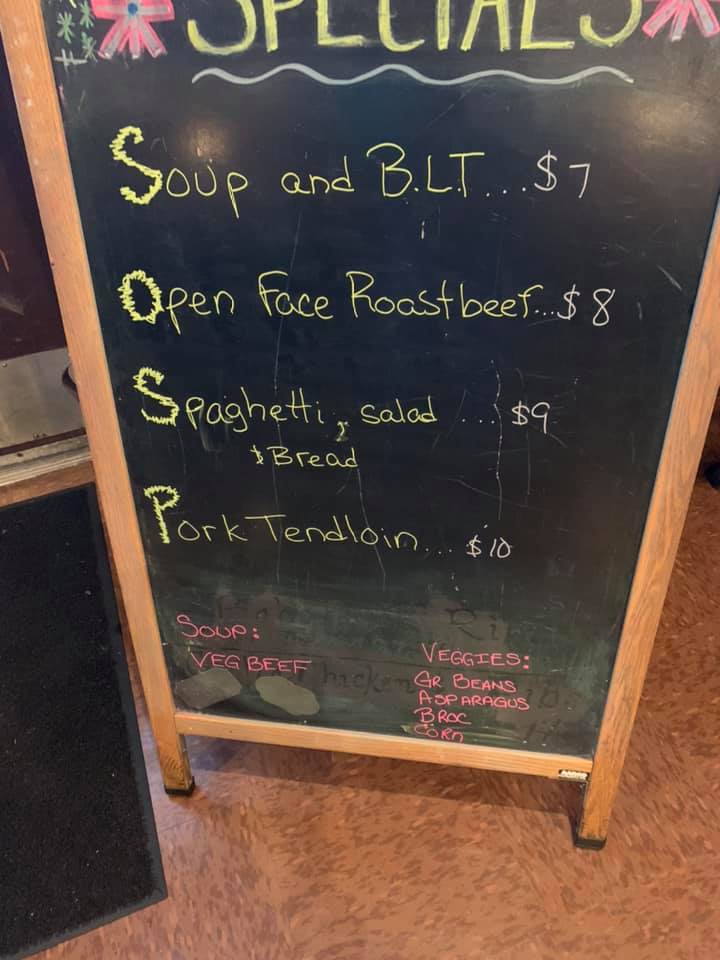 SPECIALS
Soup and B.L.T...$7
Open Face Roastbeef...$8
Spaghetti, salad ... $9
& Bread
Pork Tendloin... $10
SOUP:
VEG BEEF
VEGGIES:
GR BEANS
ASPARAGUS
BROC
CORN